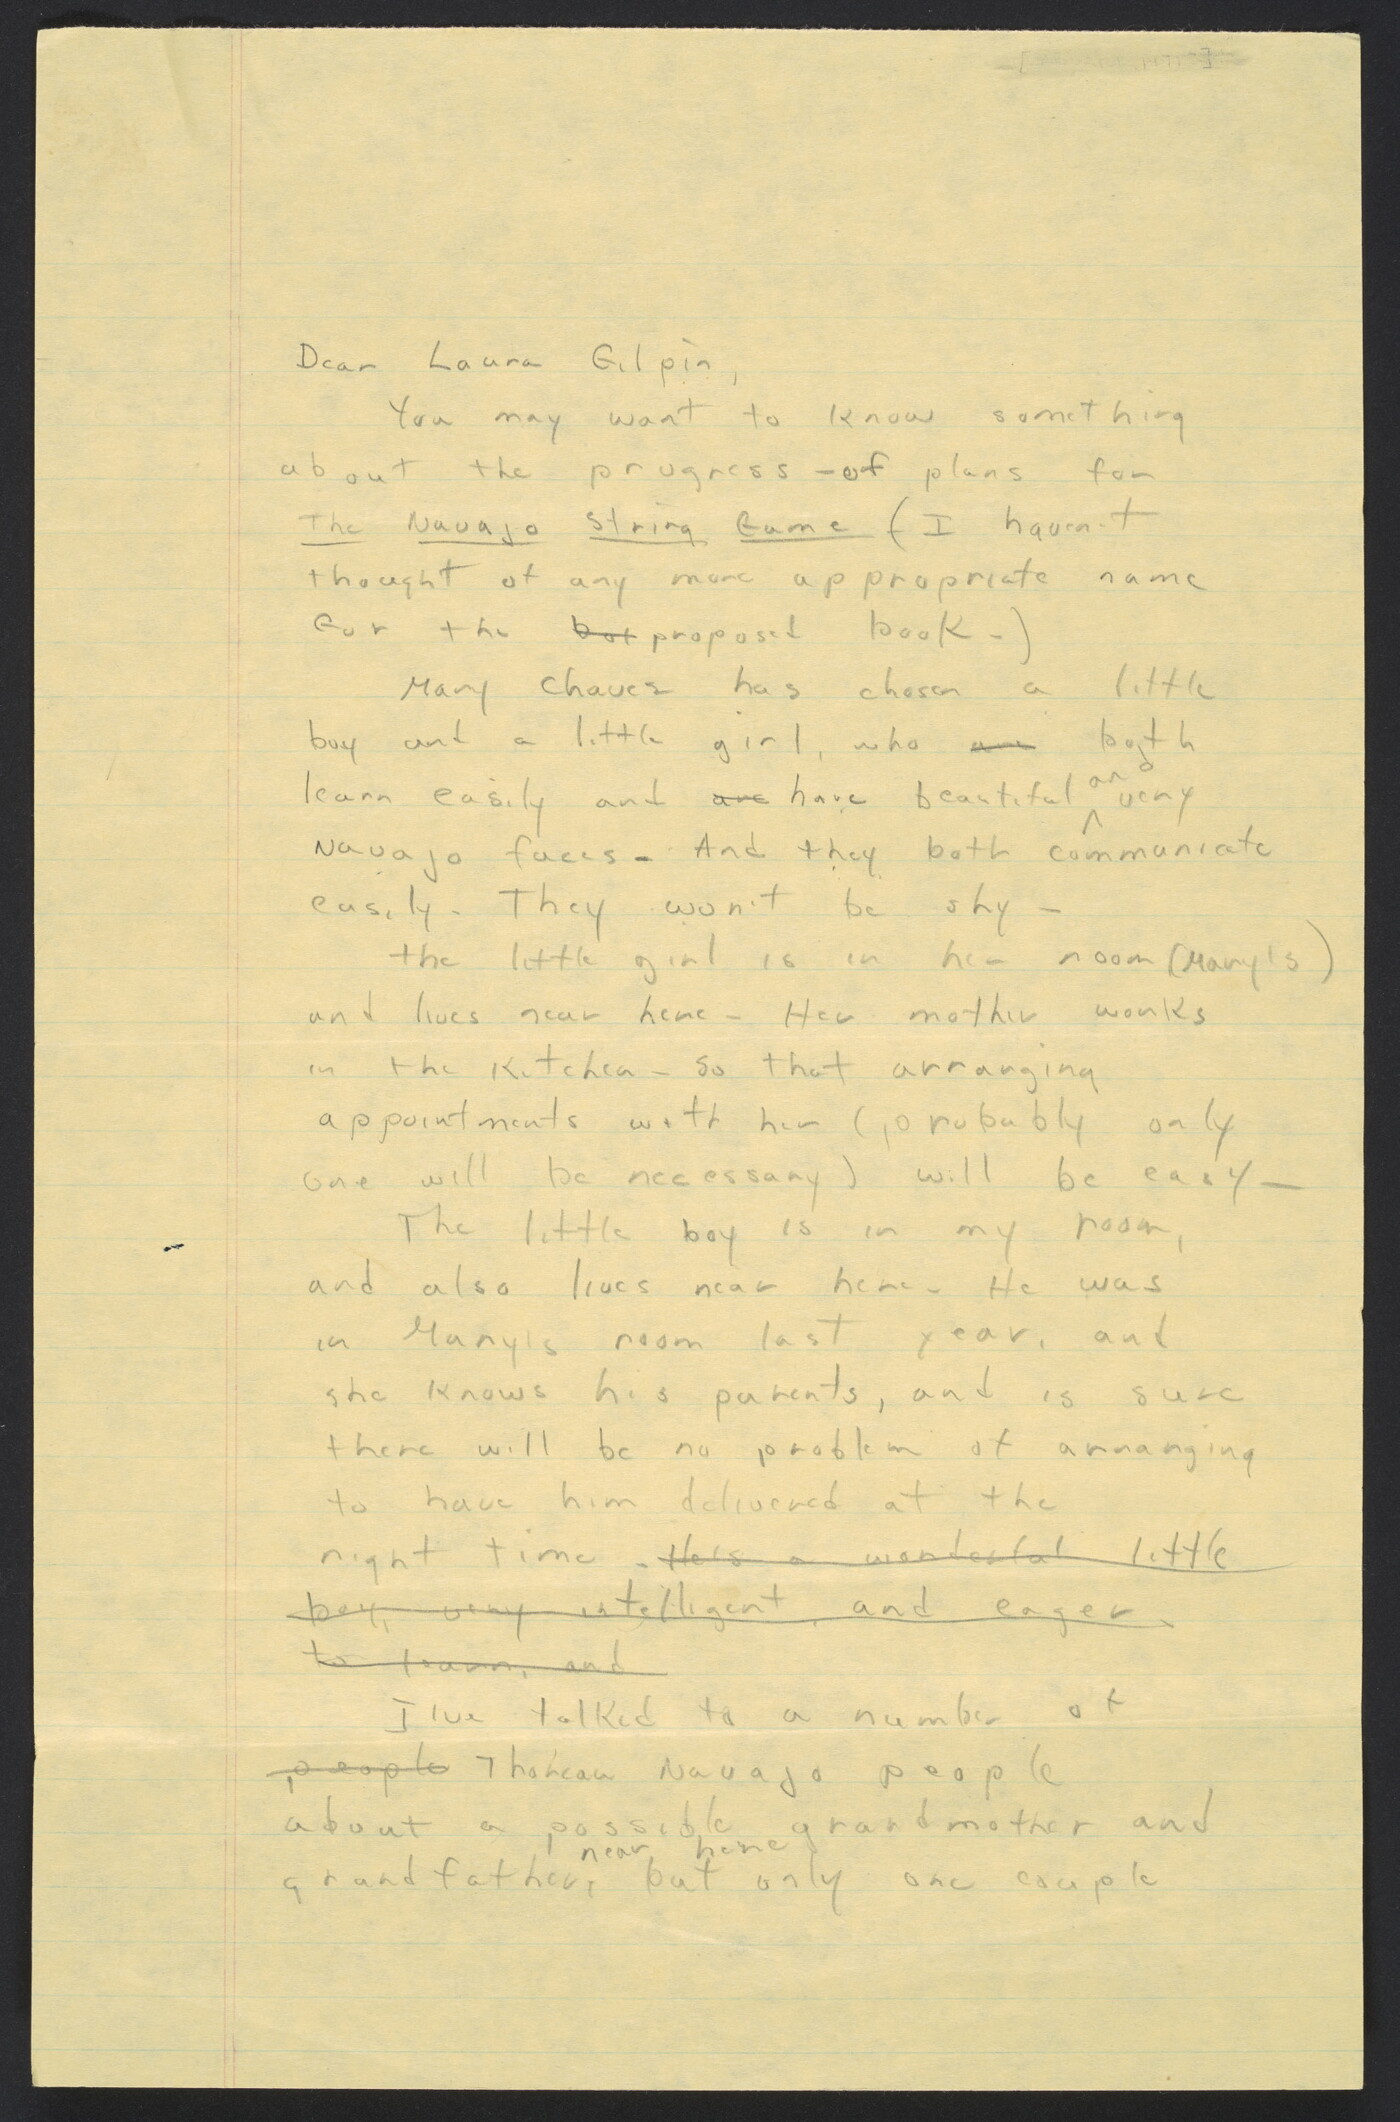 Dear Laura Gilpin,
You may want to know something
about the progress of plans for
The Navajo String Game (I haven't
thought of any more appropriate name
for the bot proposed book -)
Mary Chavez has chosen a little
boy and a little girl, who are both
learn easily and are have beautiful and very
Navajo faces - And they both communicate
easily - They won't be shy -
the little girl is in her room (Mary's)
and lives near here - Her mother works
in the kitchen - so that arranging
appointments with her (probably only
one will be necessary) will be easy -
The little boy is in my room,
and also lives near here - He was
in Mary's room last year, and
she knows his parents, and is sure
there will be no problem of arranging
to have him delivered at the
right time - He's a wonderful little
boy, very intelligent, and eager
to learn, and
I've talked to a number of
people Thoreau Navajo people
about a possible grandmother and
near here
grandfather, but only one couple